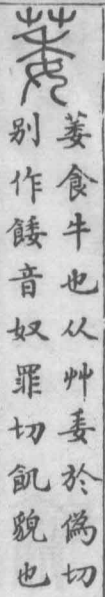 萎
萎食牛也从艸委於偽切
别作餧音奴罪切飢貌也